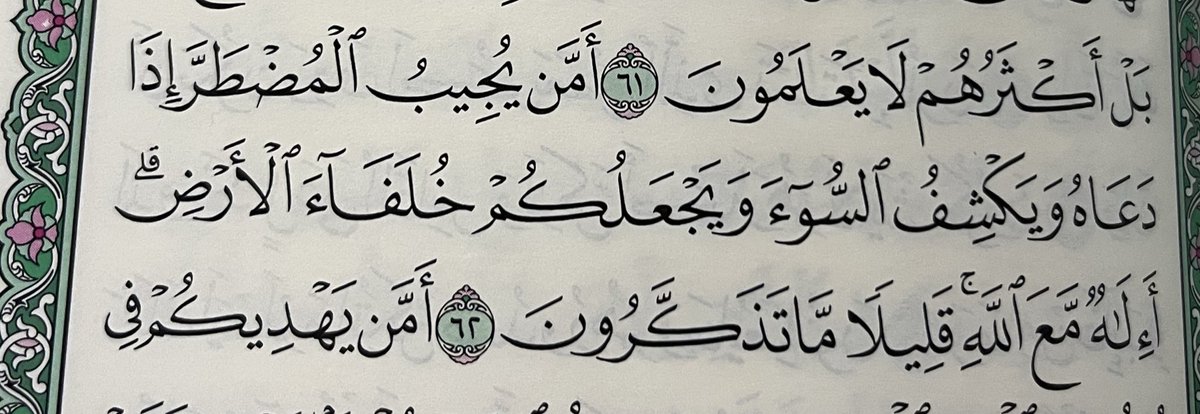 بَلْ أَكْثَرُهُمْ لَا يَعْلَمُونَ ٦١ أَمَّن يُجِيبُ ٱلْمُضْطَرَّ إِذَا
دَعَاهُ وَيَكْشِفُ ٱلسُّوٓءَ وَيَجْعَلُكُمْ خُلَفَآءَ ٱلْأَرْضِ ۗ
أَءِلَٰهٌ مَّعَ ٱللَّهِ ۚ قَلِيلًا مَّا تَذَكَّرُونَ ٦٢ أَمَّن يَهْدِيكُمْ فِى